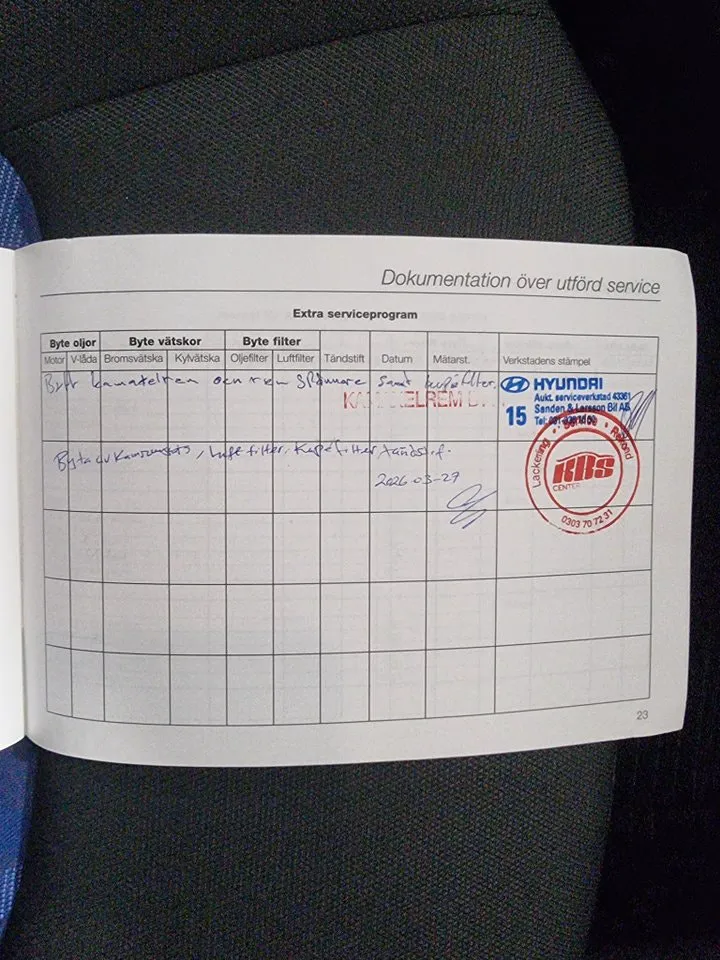 Dokumentation över utförd service
Extra serviceprogram
Byte oljor Byte vätskor Byte filter
Motor V-låda Bromsvätska Kylvätska Oljefilter Luftfilter Tändstift Datum Mätarst. Verkstadens stämpel
Bytt kamatelren och rem spännare samt kupéfilter.
HYUNDAI
Aukt. serviceverkstad 43361
15 Sanden & Larsson Bil AB
Tel:
Byta av Kamremsats, Luft filter, Kupéfilter, tändstif.
2026-03-27
Lackering Service Rekond
KBS
CENTER
0303 70 72 31
23